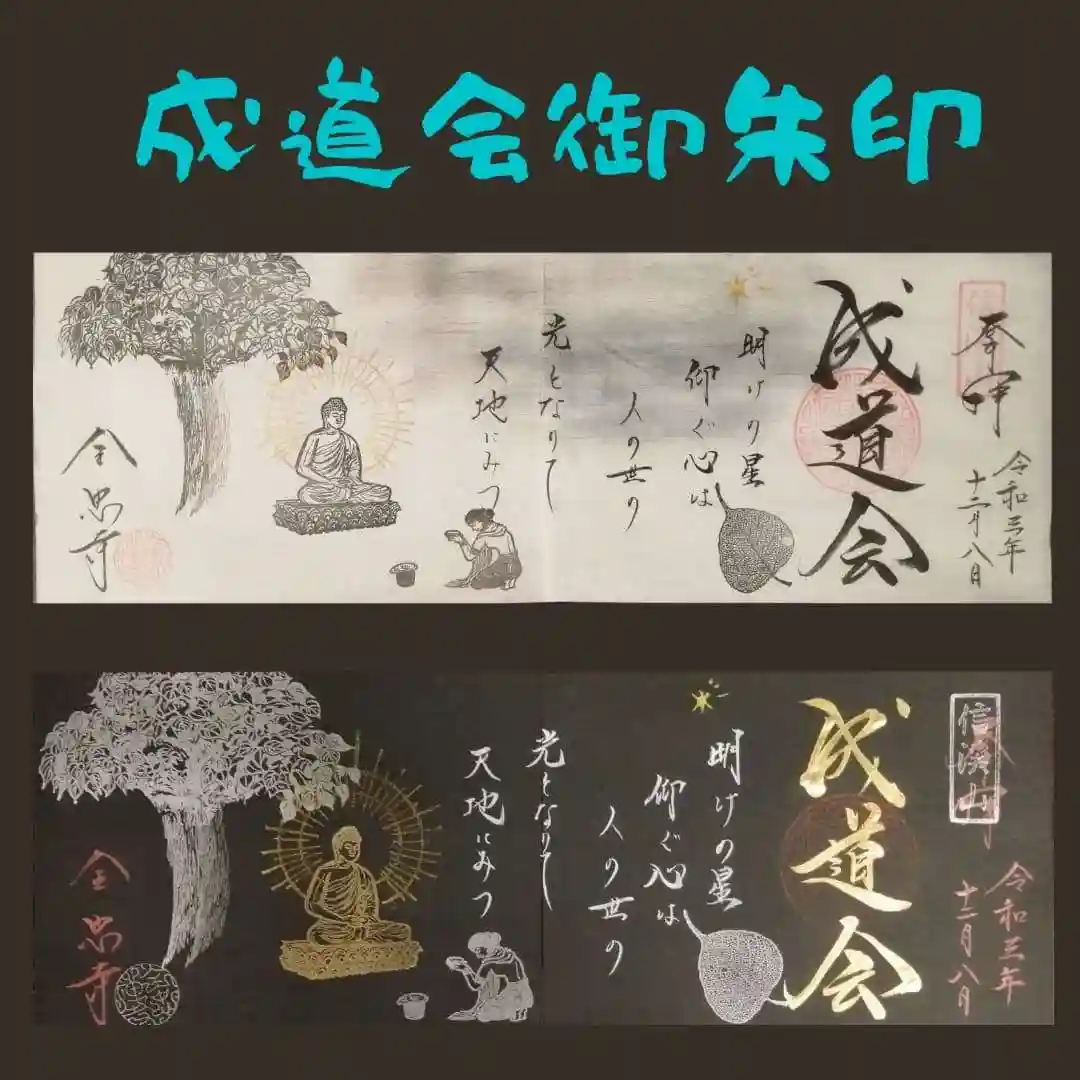 成道会御朱印
奉拝
令和三年
十二月八日
成道会
明けの星
仰ぐ心は
人の世の
光となりて
天地にみつ
全忠寺
信濟山
令和三年
十二月八日
成道会
明けの星
仰ぐ心は
人の世の
光となりて
天地にみつ
全忠寺